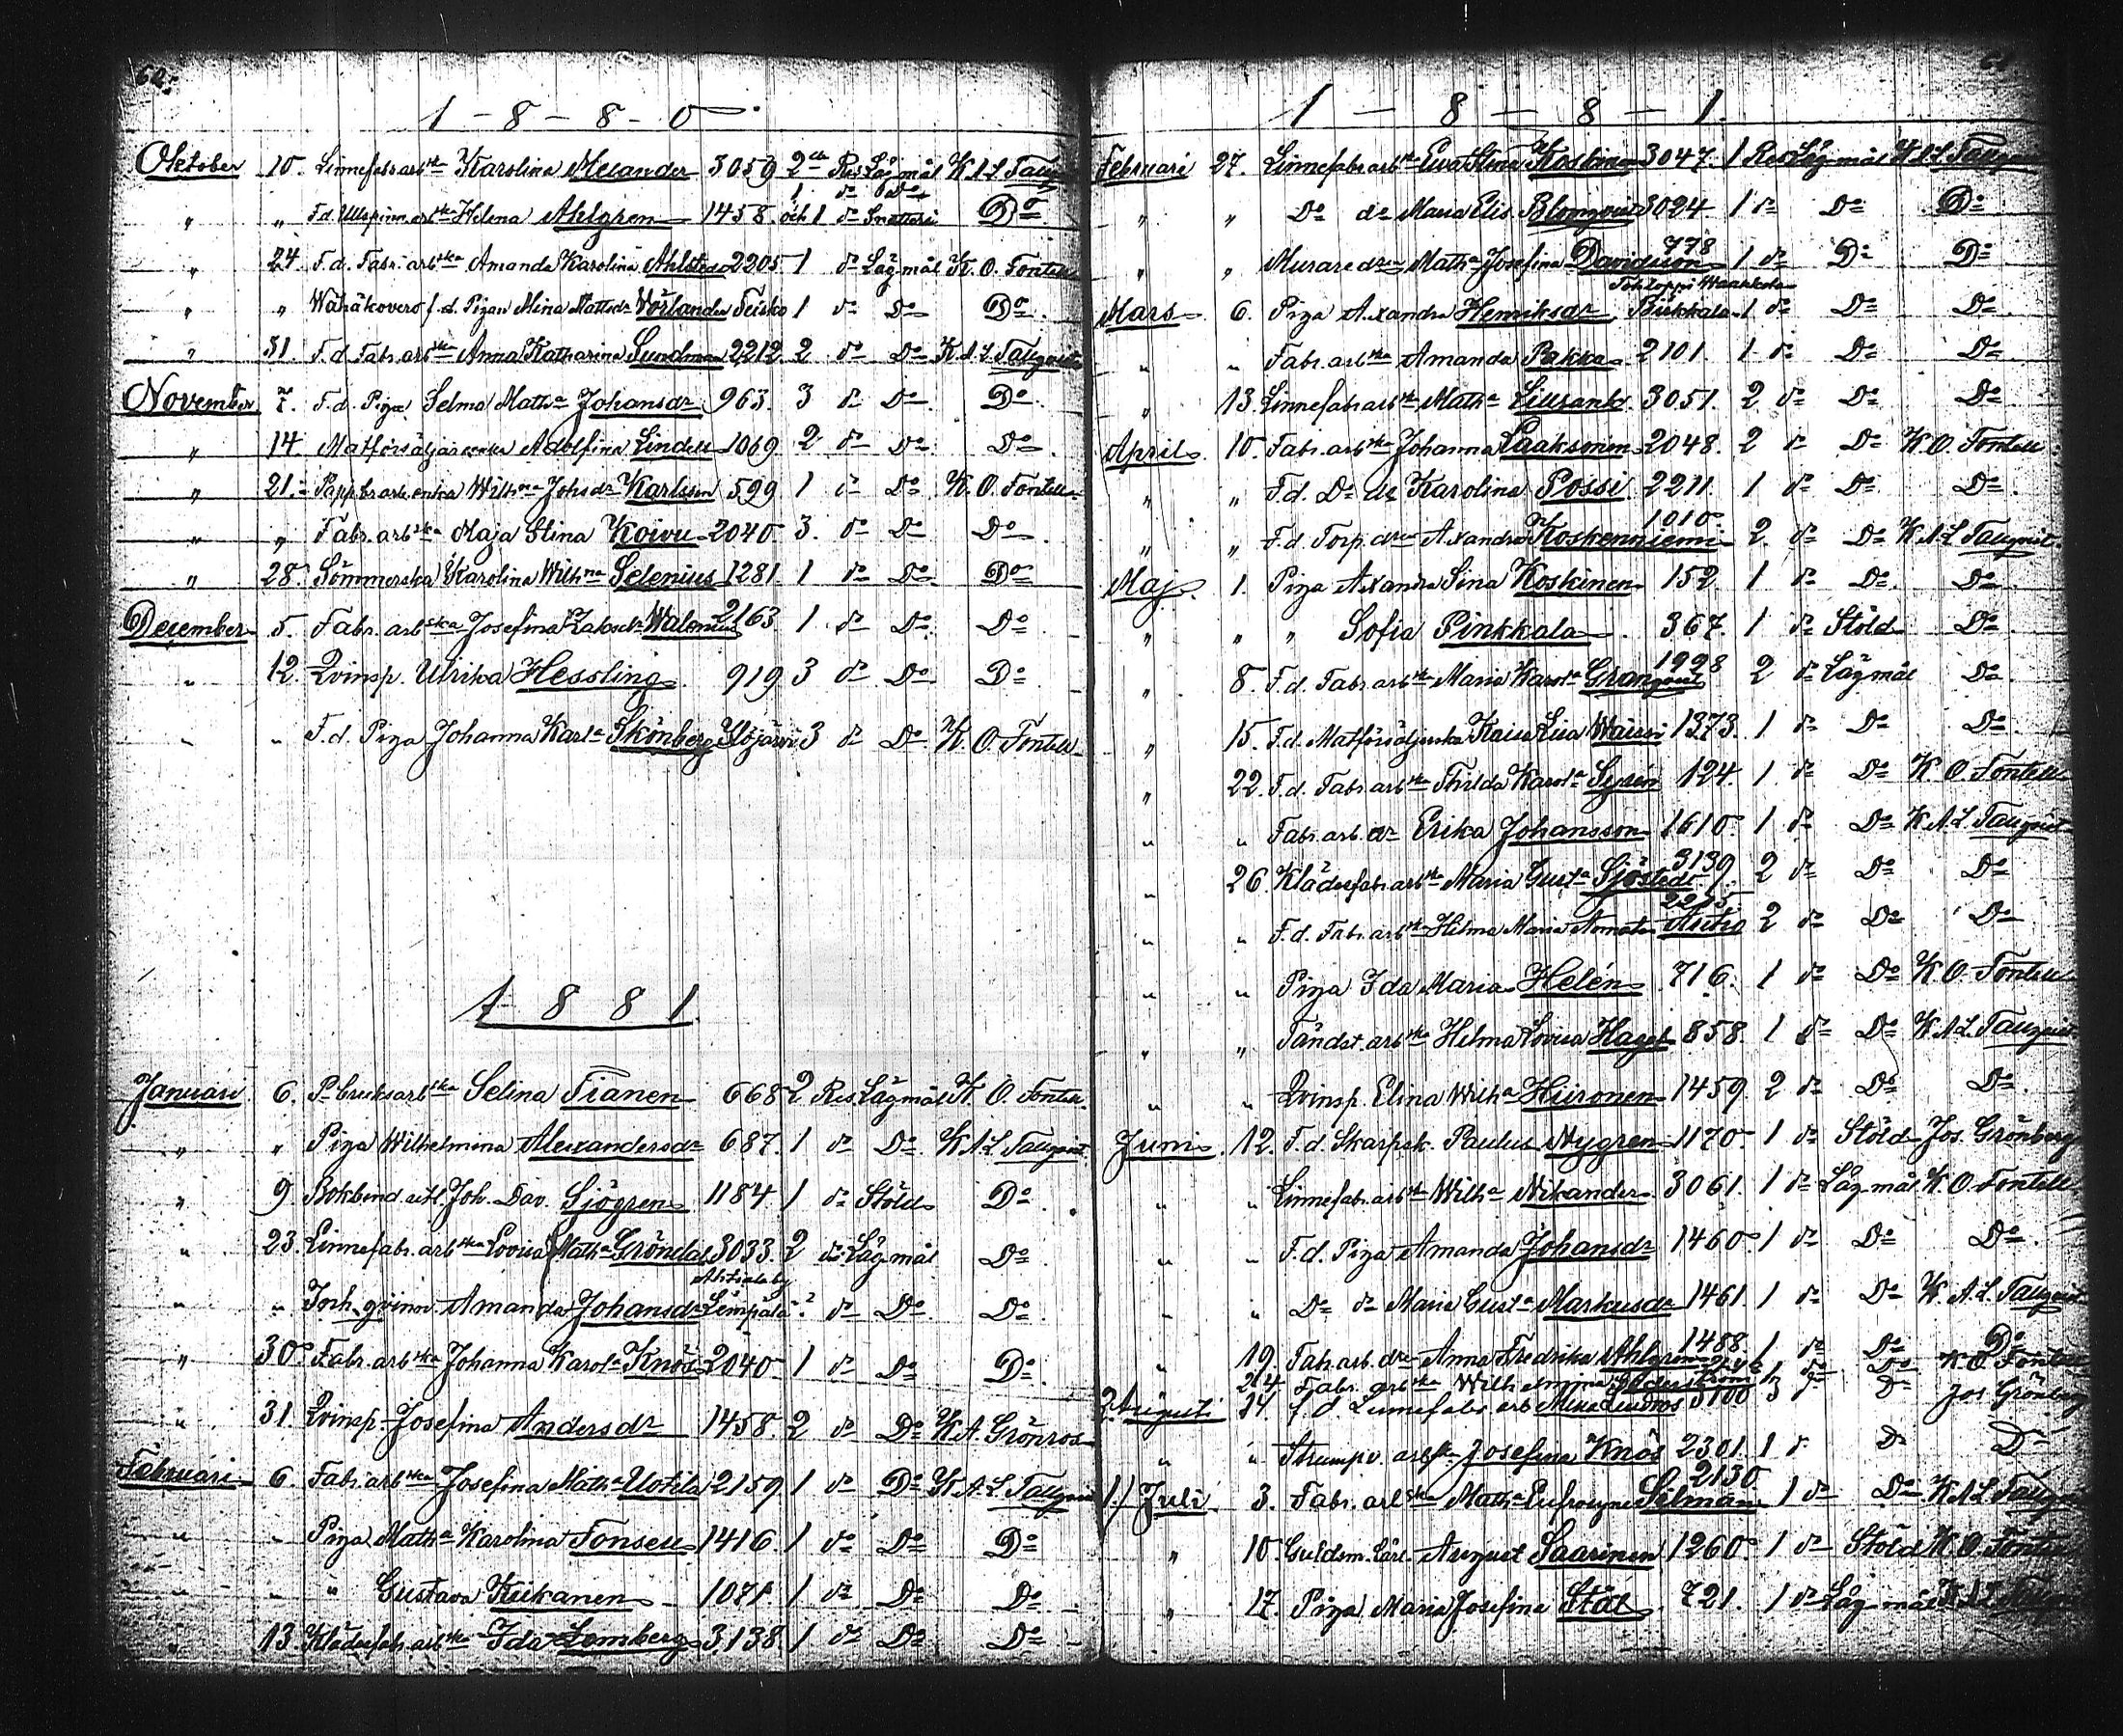 60.
1-8-8-0
Oktober 10. Linnefabr.arbska Karolina Melander 3059 2dra Res. Lägmål K.A.L. Tallqvist
1 do Do
" " F.d. Ullspinn.arbska Helena Ahlgren 1458. och 1 do Snatteri Do
" 24. F.d. Fabr.arbska Amanda Karolina Ahlstedt 2205 1 do Lägmål K.O. Fontell
" " f.d. Pigan Mina Mattsdr Teisko 1 do Do Do
" 31. F.d. Fabr.arbska Anna Katharina Sundman 2212 2 do Do K.A.L. Tallqvist
November 7. F.d. Piga Selma Matha Johansdr 963. 3 do Do Do
" 14. Matförsäljareenka Adolfina Lindell 1069 2 do Do Do
" 21. Pappbr.arb.enka Wilhna Johsdr Karlsson 599 1 do Do K.O. Fontell
" " Fabr.arbska Maja Stina Koivu 2040 3. do Do Do
" 28. Sömmerska Karolina Wilhna Selenius 1281. 1 do Do Do
December 5. Fabr.arbska Josefina Isaksdr 2163. 1 do Do Do
" 12. Qvinsp. Ulrika Hessling 919 3 do Do Do
" " F.d. Piga Johanna Karla Skönberg Ylöjärvi 3 do Do K.O. Fontell
1881.
Januari 6. P.bruksarbska Selina Tianen 668 2 Res. Lägmål K.O. Fontell
" " Piga Wilhelmina Alexandersdr 687. 1 do Do K.A.L. Tallqvist
" 9 Bokbind. Joh. Dav. Sjögren 1184. 1 do Stöld Do
" 23. Linnefabr.arbska Lovisa Matha Gröndal 3033. 2 do Lägmål Do
" " Inh. qvinan Amanda Johansdr Lempäälä 2 do Do Do
" 30 Fabr.arbska Johanna Karola Knös 2040 1 do Do Do
" 31. Qvinsp. Josefina Andersdr 1458. 2 do Do K.A. Grönroos
Februari 6. Fabr.arbska Josefina Matha Uotila 2159 1 do Do K.A.L. Tallqvist
" " Piga Matha Karolina Fonsell 1416. 1 do Do Do
" " " Gustava Keikanen 1071. 1 do Do Do
" 13. Klädesfabr.arbska Ida Lomberg 3138. 1 do Do Do
1-8-8-1.
Februari 27. Linnefabr.arbska Eva Stina Koskinen 3047. 1 Res. Lägmål K.A.L. Tallqvist
" " Do do Maria Elis. Blomqvist 3024. 1 do Do Do
778
" " Muraredr Matha Josefina Davidsson 1 do Do Do
Mars 6. Piga Axandra Henriksdr Birkkala 1 do Do Do
" " Fabr.arbska Amanda Pakka 2101 1 do Do Do
" 13. Linnefabr.arbska Matha 3051. 2 do Do Do
April 10. Fabr.arbska Johanna Laaksonen 2048. 2 do Do K.O. Fontell
" " F.d. Do do Karolina Possi 2211. 1 do Do Do
1010
" " F.d. Torp.dr Axandra Koskenniemi 2 do Do K.A.L. Tallqvist
Maj 1. Piga Axandra Sina Koskinen 152 1 do Do Do
" " " Sofia Pinkkala 367. 1 do Stöld Do
1998
" 8. F.d. Fabr.arbska Maria Karola Granqvist 2 do Lägmål Do
" 15. F.d. Matförsäljerska Kaisa Lisa 1373. 1 do Do Do
" 22. F.d. Fabr.arbska Thilda Karola Syrén 124. 1 do Do K.O. Fontell
" " Fabr.arb.dr Erika Johansson 1610 1 do Do K.A.L. Tallqvist
3139
" 26. Klädesfabr.arbska Maria Gusta Sjöstedt 2 do Do Do
2205.
" " F.d. Fabr.arbska Hilma Maria Autio 2 do Do Do
" " Piga Ida Maria Helén 716. 1 do Do K.O. Fontell
" " Tändst.arbska Hilma Lovisa Hagel 858. 1 do Do K.A.L. Tallqvist
" " Qvinsp. Elina Wilha Hiironen 1459. 2 do Do Do
Juni 12. F.d. Skarpsk. Paulus Nygren 1170 1 do Stöld Jos. Grönberg
" " Linnefabr.arbska Wilha Nikander 3061. 1 do Lägmål K.O. Fontell
" " F.d. Piga Amanda Johansdr 1460. 1 do Do Do
" " Do do Maria Gusta Markusdr 1461. 1 do Do K.A.L. Tallqvist
" 19. Fabr.arb.dr Anna Fredrika Ahlgren 1488. 1 do Do Do
24. Fabr.arbska Wilhelmina do Do K.O. Fontell
2. Augusti 14. f.d. Linnefabr.arb. Mina Lindroos 3100 3 do Do Jos Grönberg
" " Strumpv.arbska Josefina Knös 2301. 1 do Do Do
2130.
1.) Juli 3. Fabr.arbska Matha Eufrosyne Silman 1 do Do K.A.L. Tallqvist
" 10. Guldsm.lärl. August Saarinen 1260. 1 do Stöld K.O. Fontell
" 17. Piga Maria Josefina Stål 721. 1 do Lägmål K.A.L. Tallqvist